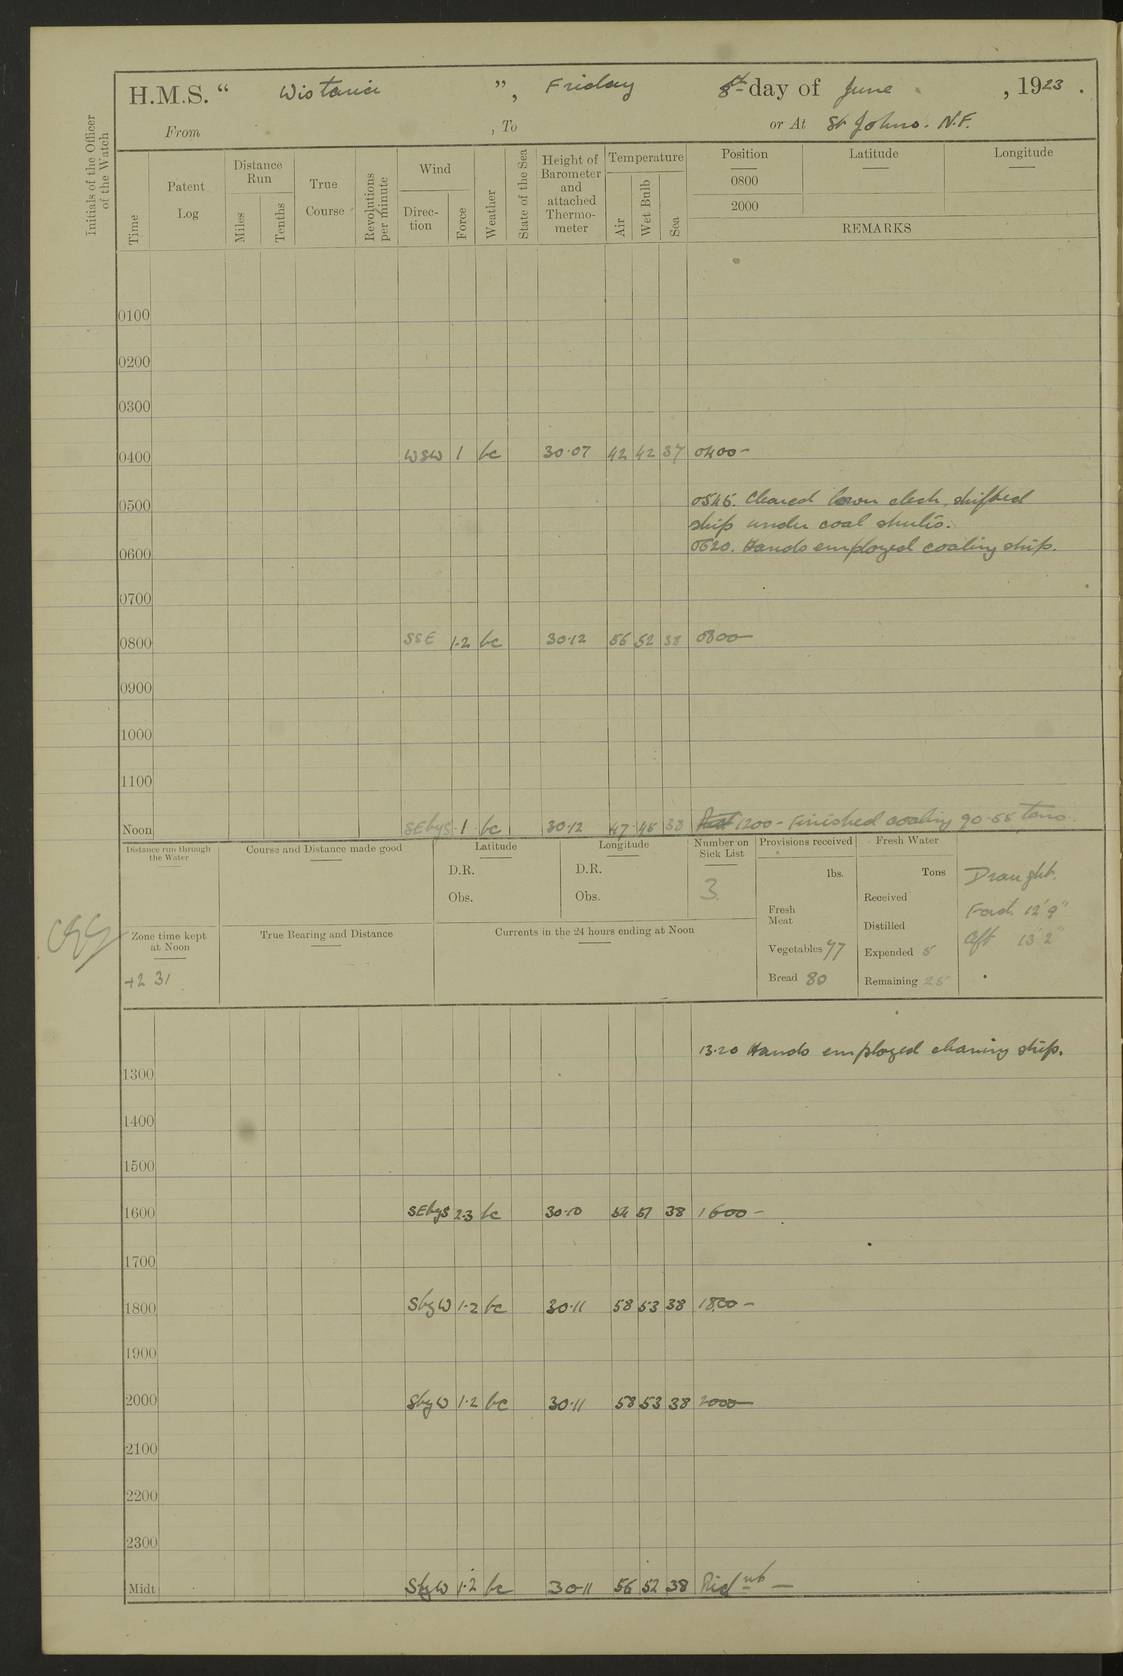 H.M.S. “ Wistaria ”, Friday 8th day of June , 1923 .
From , To or At St Johns. N.F.
Initials of the Officer of the Watch
Time
Patent Log
Distance Run
Miles
Tenths
True Course
Revolutions per minute
Wind
Direction
Force
Weather
State of the Sea
Height of Barometer and attached Thermometer
Temperature
Air
Wet Bulb
Sea
Position Latitude Longitude
0800
2000
REMARKS
0100
0200
0300
0400 WSW 1 bc 30·07 42 42 37 0400 -
0500 0545. Cleared lower deck, shifted
ship under coal shutes.
0600 0620. Hands employed coaling ship.
0700
0800 SSE 1·2 bc 30·12 56 52 38 0800
0900
1000
1100
Noon SEbyS 1 bc 30·12 47 45 38 1200 - Finished coaling 90·55 tons.
Distance run through the Water
Course and Distance made good
Latitude
D.R.
Obs.
Longitude
D.R.
Obs.
Number on Sick List
3
Provisions received
lbs.
Fresh Meat
Vegetables 77
Bread 80
Fresh Water
Tons
Received
Distilled
Expended 5
Remaining 25
Draught.
Ford 12'9"
Aft 13'2"
Zone time kept at Noon
+2 31
True Bearing and Distance
Currents in the 24 hours ending at Noon
13·20 Hands employed cleaning ship.
1300
1400
1500
1600 SEbyS 2·3 bc 30·10 54 51 38 1600 -
1700
1800 SbyW 1·2 bc 30·11 58 53 38 1800 -
1900
2000 SbyW 1·2 bc 30·11 58 53 38 2000
2100
2200
2300
Midt SbyW 1·2 bc 30·11 56 52 38 Midnt -